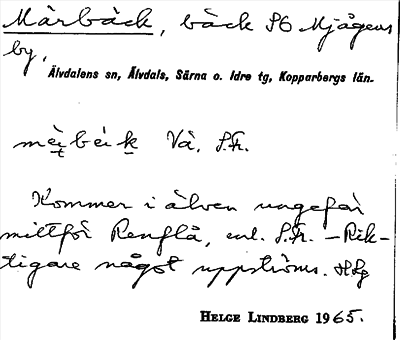 Mårbäck, bäck SO Mjågens
by,
Älvdalens sn, Älvdals, Särna o. Idre tg, Kopparbergs län.
Vå, S.Tr.
Kommer i älven ungefär
mittför Renflå, enl. S.Tr. – Rik-
tigare något uppströms. HLg
HELGE LINDBERG 1965.